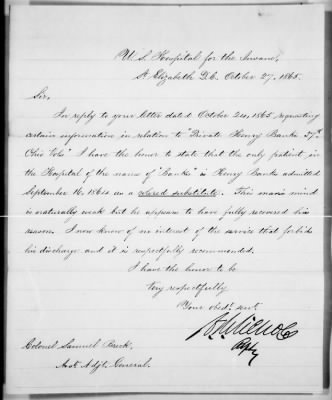 U. S. Hospital for the Insane,
St. Elizabeth D.C. October 27, 1865.
Sir,
In reply to your letter dated October 24, 1865 requesting
certain information in relation to "Private Henry Banks 27th
Ohio Vols" I have the honor to state that the only patient in
the Hospital of the name of "Banks" is Henry Banks admitted
September 16, 1864 as a colored substitute. This man's mind
is naturally weak but he appears to have fully recovered his
reason. I now know of no interest of the service that forbids
his discharge and it is respectfully recommended.
I have the honor to be
Very respectfully
Your obedt. servt.
Colonel Samuel Breck,
Asst Adjt. General.